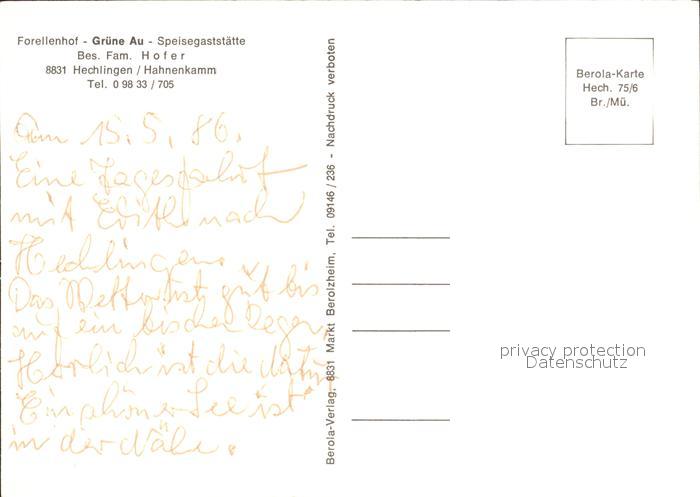 Forellenhof - Grüne Au - Speisegaststätte
Bes. Fam. Hofer
8831 Hechlingen / Hahnenkamm
Tel. 0 98 33 / 705
Am 15. 5. 86.
Eine Tagesfahrt
mit Edith nach
Hechlingen.
Das Wetter ist gut bis
auf ein bischen Regen.
Herrlich ist die Natur
Ein schöner See ist
in der Nähe.
Berola-Verlag, 8831 Markt Berolzheim, Tel. 09146 / 236 - Nachdruck verboten
Berola-Karte
Hech. 75/6
Br./Mü.
privacy protection
Datenschutz